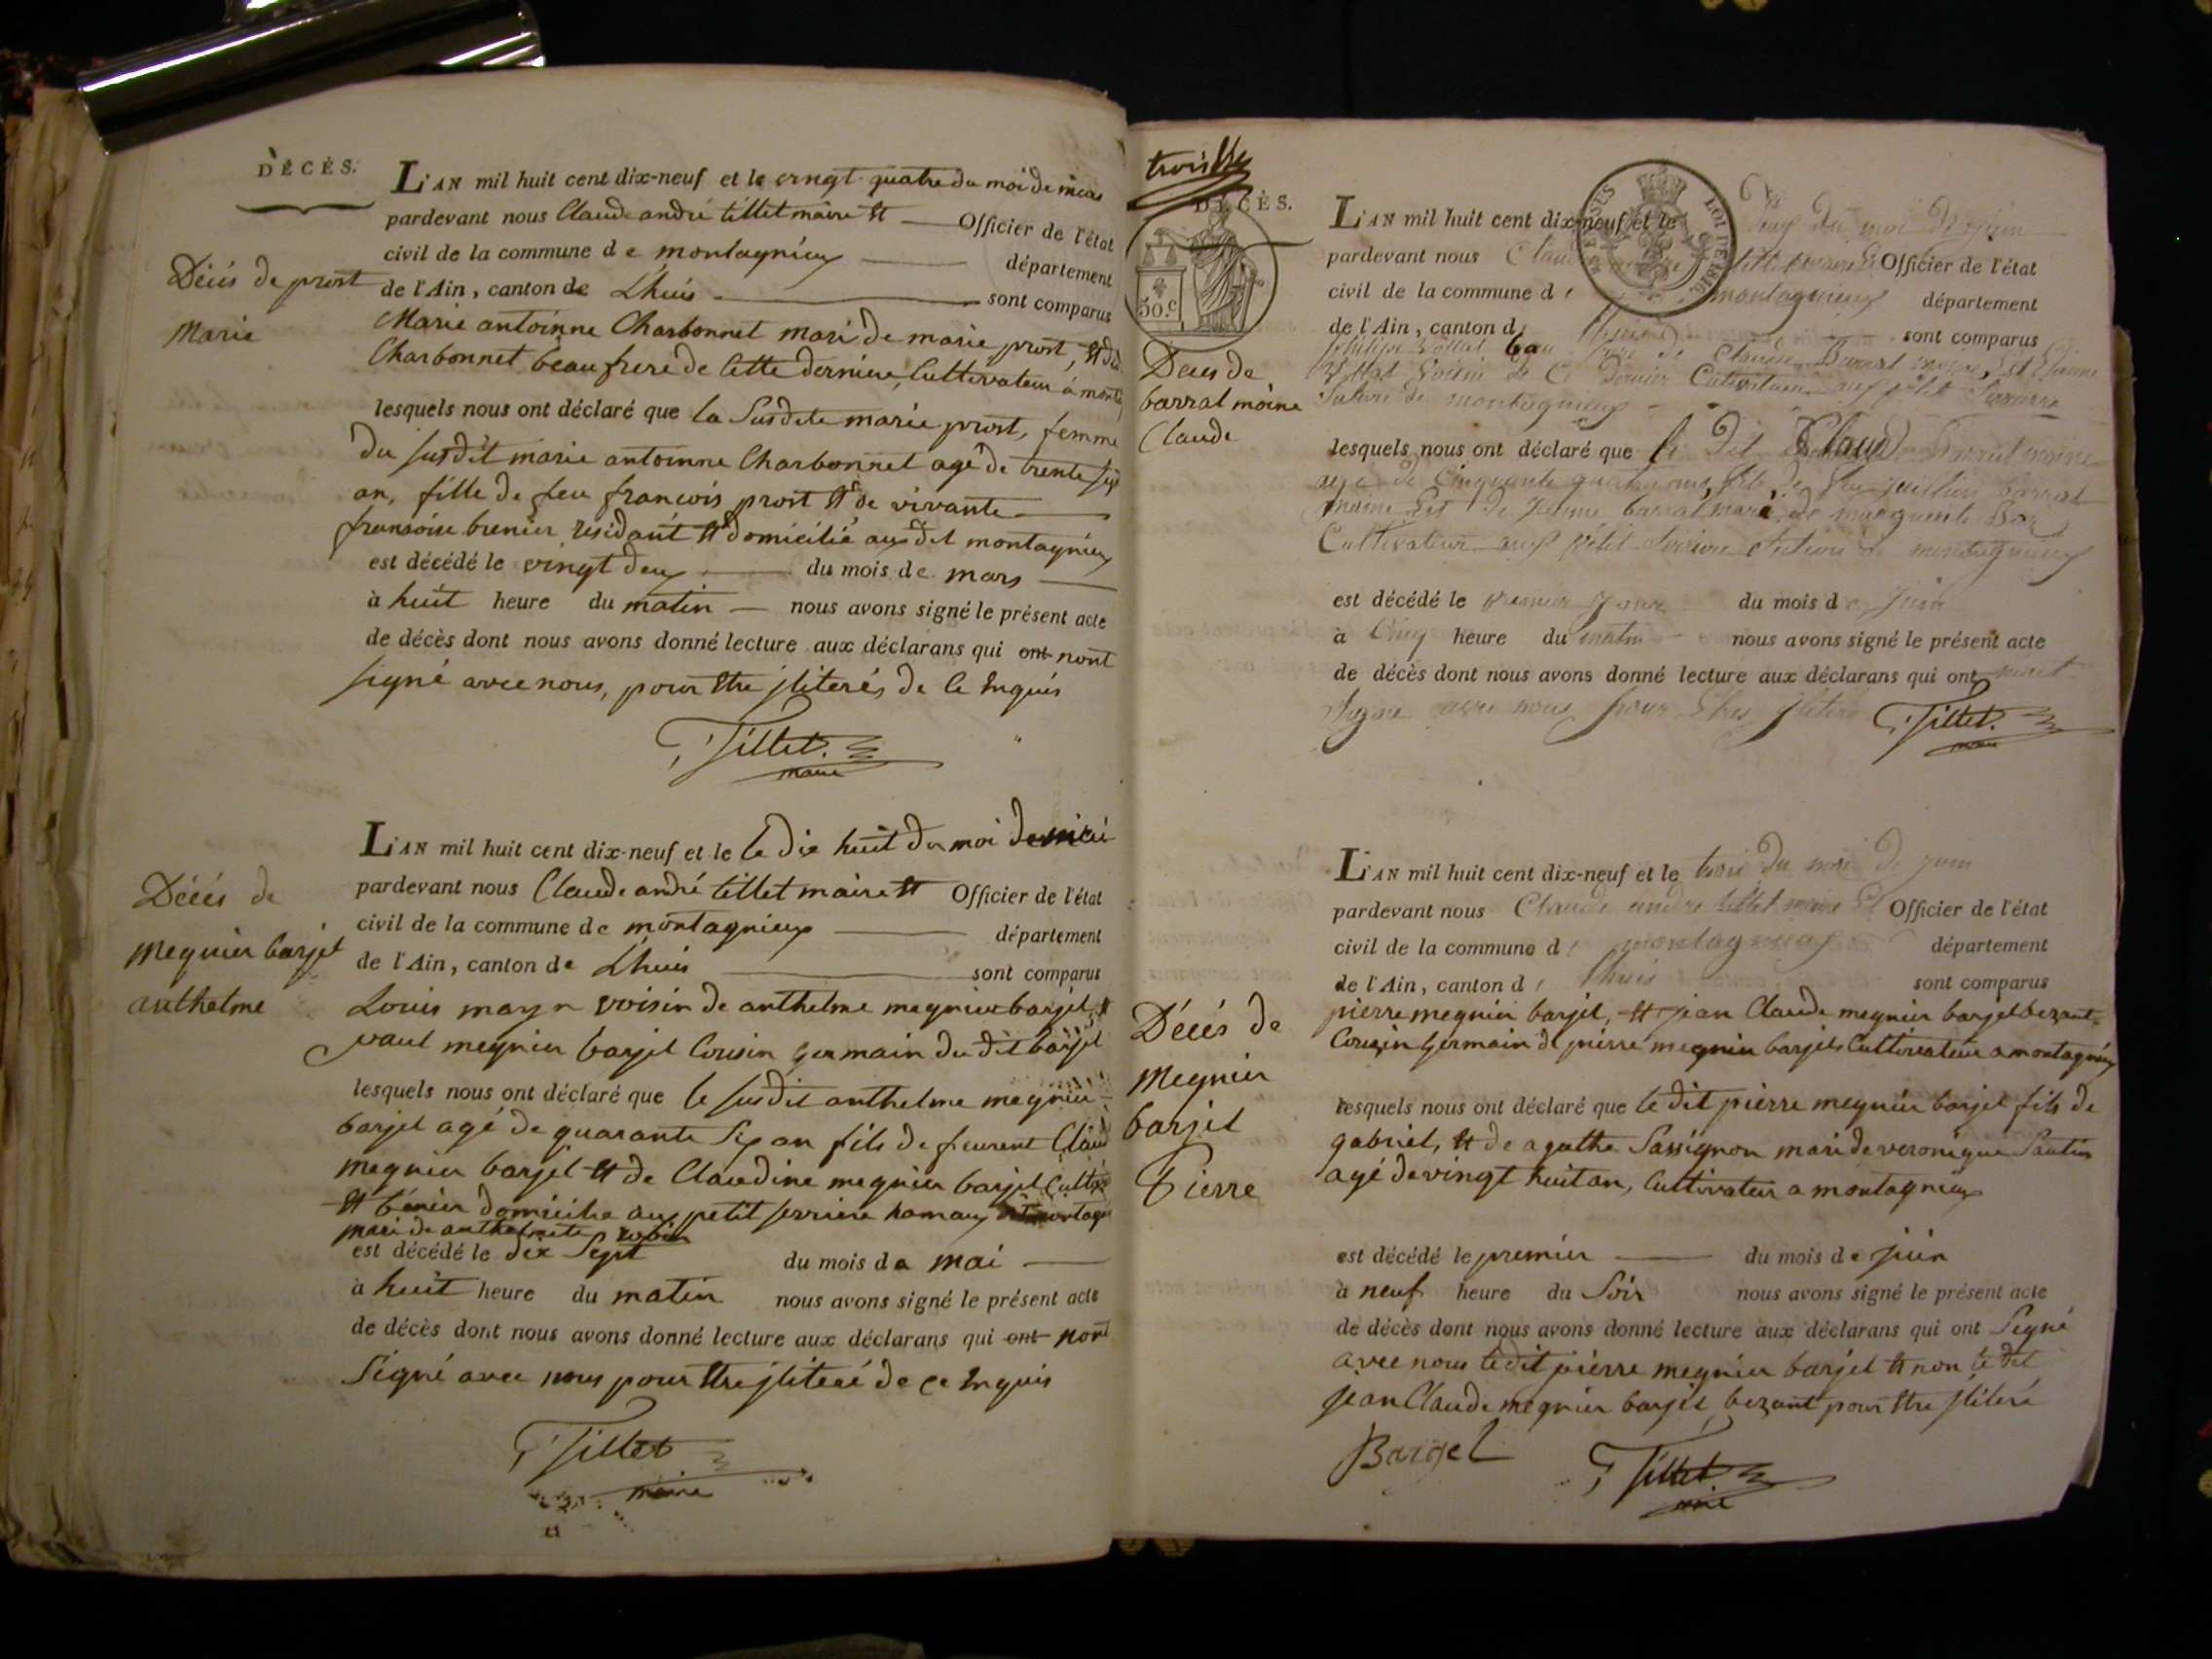 DÉCÈS.
Décés de prost
Marie
L'AN mil huit cent dix-neuf et le vingt quatre du moi de mars
pardevant nous Claude andré tillet maire et Officier de l'état
civil de la commune de montagnieux département
de l'Ain, canton de Lhuis sont comparus
Marie antoinne Charbonnet mari de marie prost, et
Charbonnet beau frere de cette derniere, Cultivateur á
lesquels nous ont déclaré que la Susdite marie prost, femme
du susdit marie antoinne Charbonnet agé de trente
an, fille de feu francois prost et de vivante
francoise brenier residant et domicilié aus dit montagnieux
est décédé le vingt deux du mois de mars
à huit heure du matin nous avons signé le présent acte
de décès dont nous avons donné lecture aux déclarans qui ont nont
signé avec nous, pour etre jliterés de ce Enquis
Tillet.
maire
Décés de
Megnier barjet
anthelme
L'AN mil huit cent dix-neuf et le le dix huit du moi de mai
pardevant nous Claude andré tillet maire et Officier de l'état
civil de la commune de montagnieux département
de l'Ain, canton de Lhuis sont comparus
Louis voisin de anthelme megnier barjet et
paul megnier barjet Cousin germain du dit barjet
lesquels nous ont déclaré que le susdit anthelme megnier
barjet agé de quarante Six an fils de Claud
megnier barjet et de Claudine megnier barjet
et domicilie aux petit serriere hamaux
mari de robin
est décédé le dix Sept du mois de mai
à huit heure du matin nous avons signé le présent acte
de décès dont nous avons donné lecture aux déclarans qui ont nont
Signé avec nous pour etre jliteré de ce Enquis
Tillet
maire
trois
DÉCÈS.
50.C
LOI DE 1816
Deces de
barral moine
Claude
L'AN mil huit cent dix-neuf et le deux du moi de juin
pardevant nous Claude tillet maire Et Officier de l'état
civil de la commune de montagnieux département
de l'Ain, canton de Lhuis sont comparus
philipe de Claude Barral moine, Et
voisin de Ce dernier Cultivateur aux petit Serriere
de montagnieux
lesquels nous ont déclaré que le dit Claude Barral moine
agé de Cinquante quatre ans, fils de feu barral
moine Et de barral mari de marguerite
Cultivateur aux pétit de montagnieux
est décédé le premier du mois de juin
à Cinq heure du matin nous avons signé le présent acte
de décès dont nous avons donné lecture aux déclarans qui ont nont
Signe avec nous pour Etres
Tillet.
maire
Décés de
Megnier
barjet
Pierre
L'AN mil huit cent dix-neuf et le trois du moi de juin
pardevant nous Claude andre tillet maire Et Officier de l'état
civil de la commune de montagnieux département
de l'Ain, canton de Lhuis sont comparus
pierre megnier barjet, et jean Claude megnier barjet bezant
Cousin germain de pierre megnier barjet Cultivateur a montagnieux
lesquels nous ont déclaré que le dit pierre megnier barjet fils de
gabriel, et de agathe Sassignon mari de veronique
agé de vingt huit an, Cultivateur a montagnieux
est décédé le premier du mois de juin
à neuf heure du Soir nous avons signé le présent acte
de décès dont nous avons donné lecture aux déclarans qui ont Signé
avec nous le dit pierre megnier barjet et non le dit
jean Claude megnier barjet bezant pour etre jliteré
Bargel
Tillet